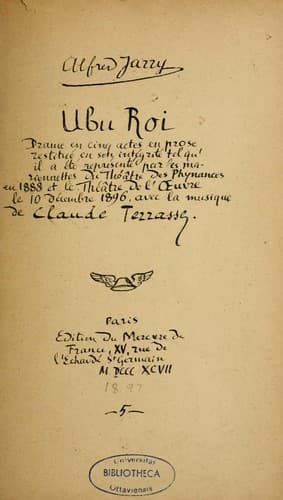 Alfred Jarry
Ubu Roi
Drame en cinq actes en prose
restitué en son intégrité tel qu'
il a été représenté par les ma-
rionnettes du Théâtre des Phynances
en 1888 et le Théâtre de l'Œuvre
le 10 décembre 1896, avec la musique
de Claude Terrasse.
Paris
Edition du Mercvre de
France, XV, rue de
l'Echaudé St Germain
M DCCC XCVII
1897
—5—
Universitas
BIBLIOTHECA
Ottaviensis